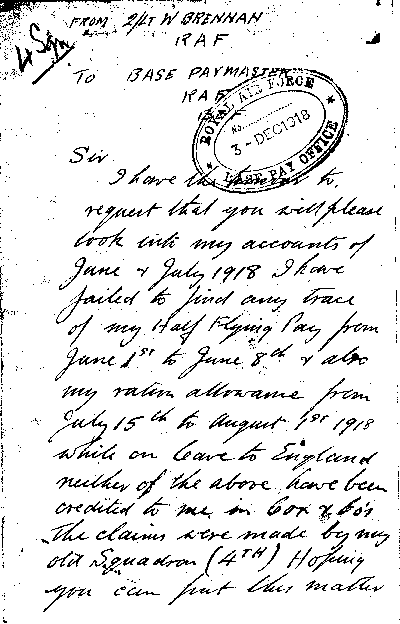 4 Sqn
FROM 2/Lt W BRENNAN
RAF
To BASE PAYMASTER
RAF
ROYAL AIR FORCE
No.
3 - DEC 1918
BASE PAY OFFICE
Sir
I have the honour to
request that you will please
look into my accounts of
June & July 1918 I have
failed to find any trace
of my Half Flying Pay from
June 1st to June 8th & also
my ration allowance from
July 15th to August 1st 1918
while on leave to England
neither of the above have been
credited to me in Cox & Co's
The claims were made by my
old Squadron (4TH) Hoping
you can put this matter